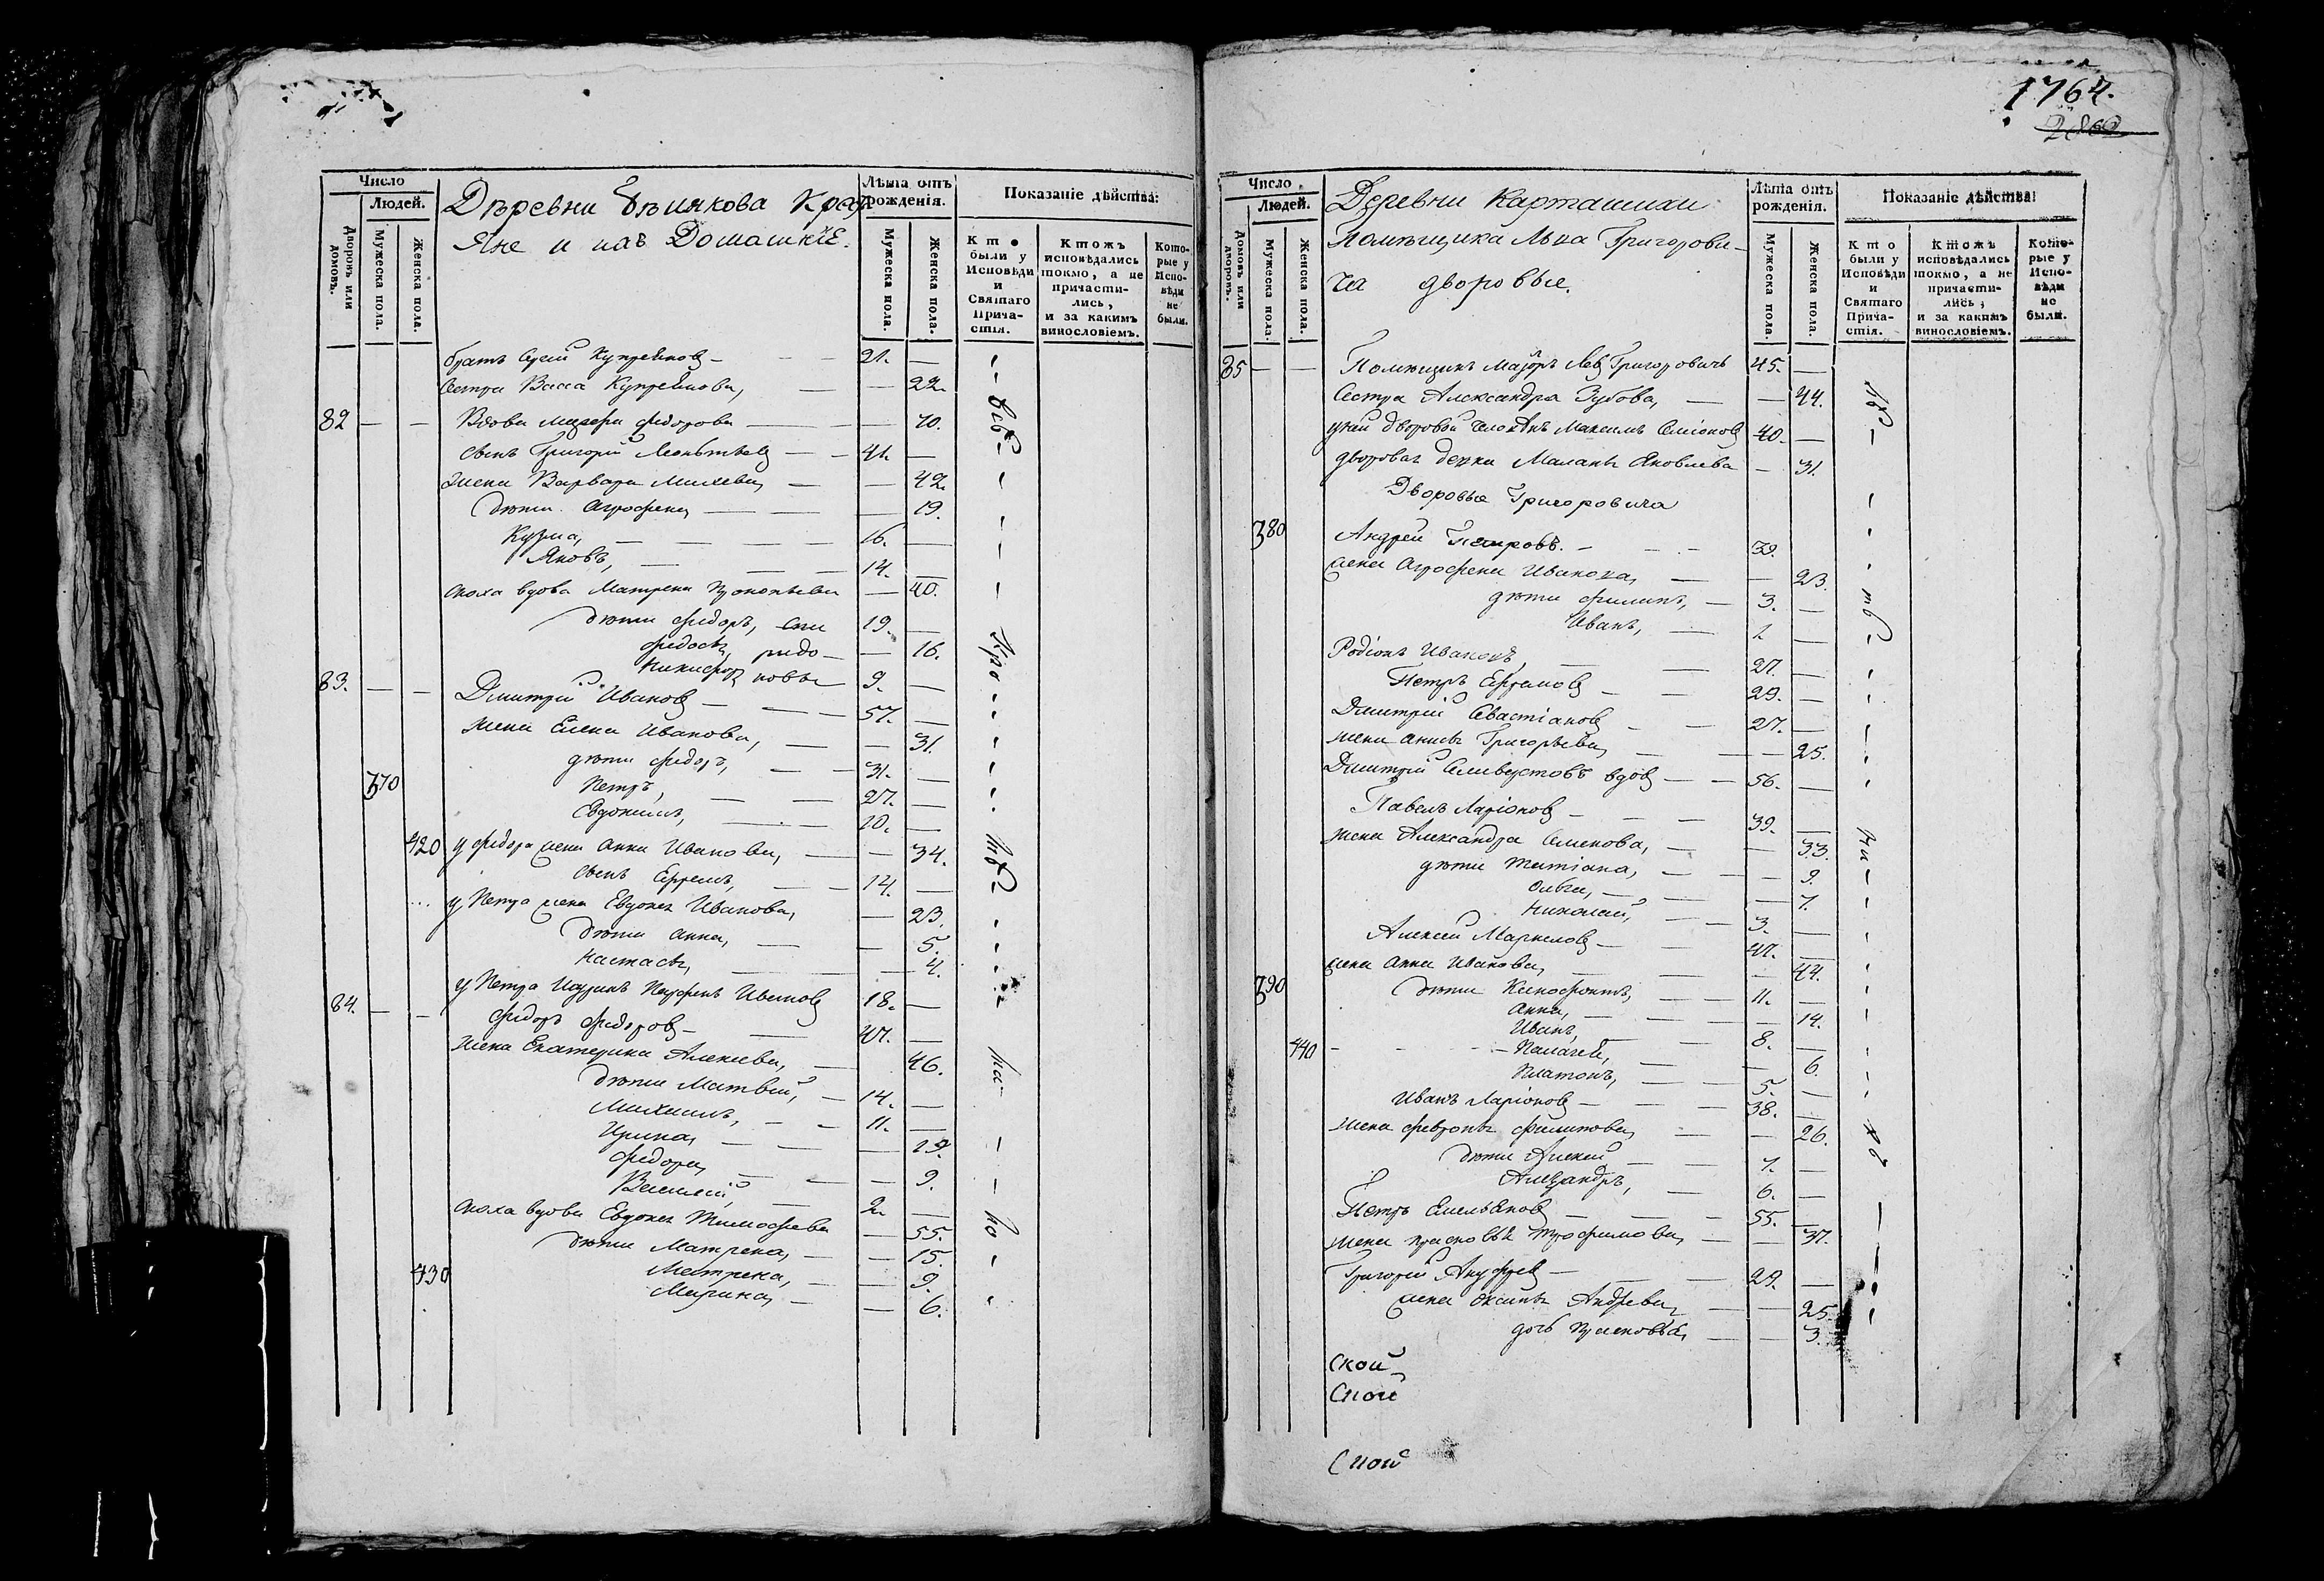 Число
Людей.
Дворовъ или домовъ.
Мужеска пола.
Женска пола.
Деревни Бѣлякова Крес
яне и ихъ Домашніе.
Лѣта отъ рожденія.
Мужеска пола.
Женска пола.
Показаніе дѣйства:
Кто были у Исповѣди и Святаго Причастія.
Ктожъ исповѣдались токмо, а не причастились, и за какимъ винословіемъ.
Которые у Исповѣди не были.
братъ 21.
Сестра Васса 22.
82 Вдова Федорова 70.
сынъ Григорій 41.
Жена Варвара 42.
дѣти Агрофена 19.
Кузма, 16.
Яковъ, 14.
сноха вдова Матрена Прокопьева 40.
дѣти Федоръ, 19.
Федосья, 16.
Никифоръ 9.
83. Дмитрій Ивановъ 57.
жена Елена Иванова, 31.
дѣти Федоръ, 31.
370 Петръ, 27.
Евдокимъ, 20.
420 у Федора жена Анна Иванова, 34.
сынъ Ефремъ, 14.
у Петра жена Евдокея Иванова, 23.
дѣти Анна, 5.
Настасья, 4.
у Петра 18.
84. Федоръ Федоровъ 47.
жена Екатерина Алексеева, 46.
дѣти Матвей, 14.
Михаилъ, 11.
Ирина, 19.
Федора, 9.
Василей, 2.
сноха вдова Евдокея Тимофеева 55.
дѣти Матрена, 15.
430 Матрена, 9.
Марина, 6.
1764.
Число
Людей.
Домовъ или дворовъ.
Мужеска пола.
Женска пола.
Деревни Карташихи
Помѣщика Льва Григорови-
ча дворовые.
Лѣта отъ рожденія.
Мужеска пола.
Женска пола.
Показаніе дѣйства:
Кто были у Исповѣди и Святаго Причастія.
Ктожъ исповѣдались токмо, а не причастились, и за какимъ винословіемъ.
Которые у Исповѣди не были.
85 Помѣщикъ Маіоръ Левъ Григоровичь 45.
Сестра Александра Зубова, 44.
у ней дворовой человѣкъ Максимъ Семіоновъ 40.
дворовая девка Маланья Яковлева 31.
Дворовые Григоровича
380 Андрей Петровъ. 30.
жена Агрофена Иванова, 23.
дѣти Филипъ, 3.
Иванъ, 1
Родіонъ Ивановъ, 27.
Петръ Ефремовъ 29.
Дмитрій Севастіановъ 27.
жена Анисья Григорьева, 25.
Дмитрій Селиверстовъ вдовъ 56.
Павелъ Ларіоновъ 39.
жена Александра Семенова, 33.
дѣти Татіана, 9.
Ольга, 7.
Николай, 3.
Алексей Маркеловъ 47.
жена Анна Иванова, 44.
390 дѣти Ксенофонтъ, 11.
Анна, 14.
Иванъ, 8.
440 Палагея, 6.
Платонъ, 5.
Иванъ Ларіоновъ 38.
жена Февронья Филипова, 26.
дѣти Алексей 7.
Александръ, 6.
Петръ Емельяновъ 55.
жена Прасковья Трофимова, 37.
Григорій Ануфревъ 29.
жена Оксинья Андреева, 25.
дочь Прасковья, 3.